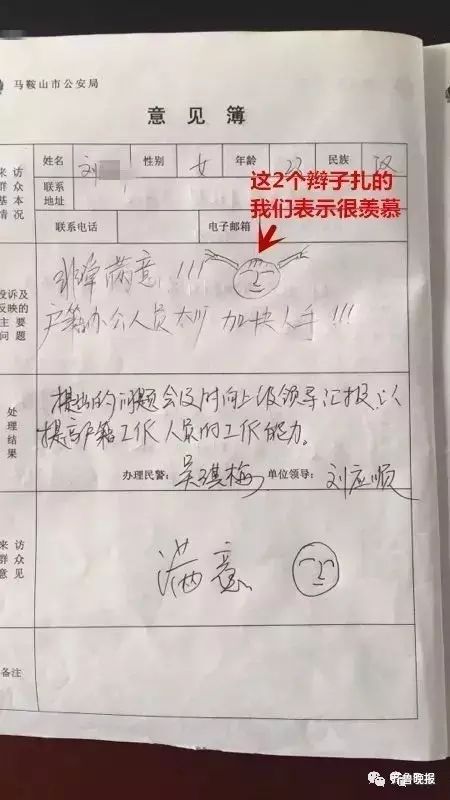 马鞍山市公安局
意见簿
来访群众基本情况
姓名 刘 性别 女 年龄 22 民族 汉
联系地址
这2个辫子扎的
我们表示很羡慕
联系电话 电子邮箱
投诉及反映的主要问题
非常满意!!!
户籍办公人员太少 加快人手!!!
处理结果
提出的问题会及时向上级领导汇报,以
提高户籍工作人员的工作能力。
办理民警: 吴琪梅 单位领导: 刘应顺
来访群众意见
满意
备注
齐鲁晚报